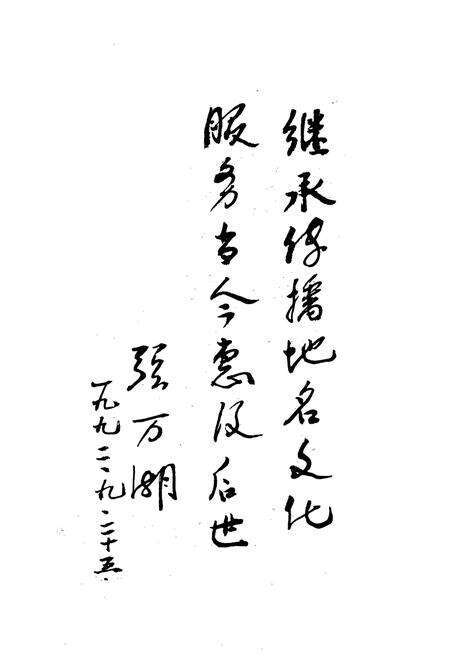 继承传播地名文化
服务当今惠及后世
张万湖
一九九二·九·二十五·